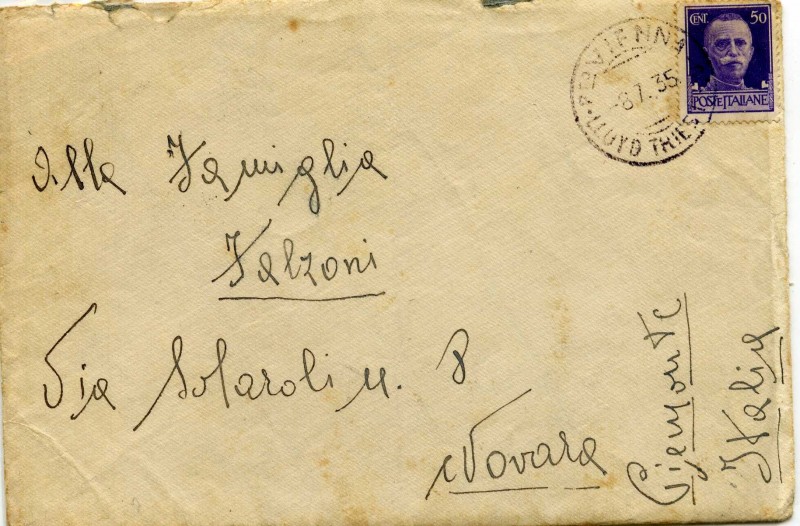 CENT. 50
POSTE ITALIANE
VIENNA
-8.7.35
LLOYD TRIEST
Alla Famiglia
Falzoni
Via Solaroli n. 8
Novara
Piemonte
Italia